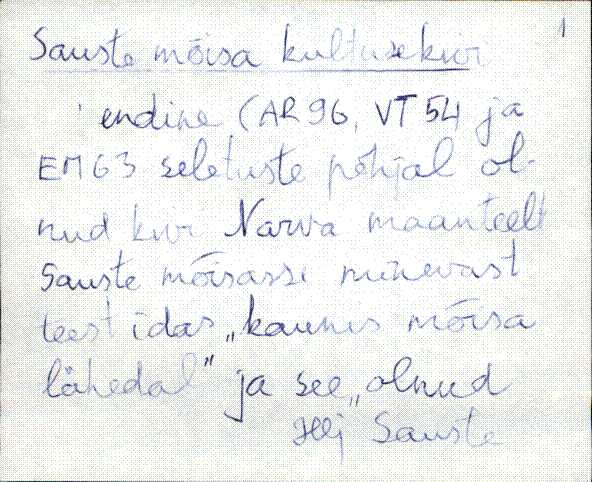 1
Sauste mõisa kultusekivi
endine (AR96, VT54 ja
EM63 seletuste põhjal ol-
nud kivi Narva maanteelt
Sauste mõisasse minevast
teest idas „kaunis mõisa
lähedal" ja see „olnud
Hlj Sauste